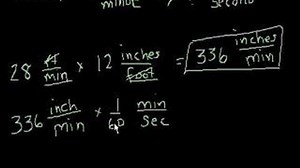 minut second
28 ft/min × 12 inches/foot = 336 inches/min
336 inch/min × 1/60 min/sec